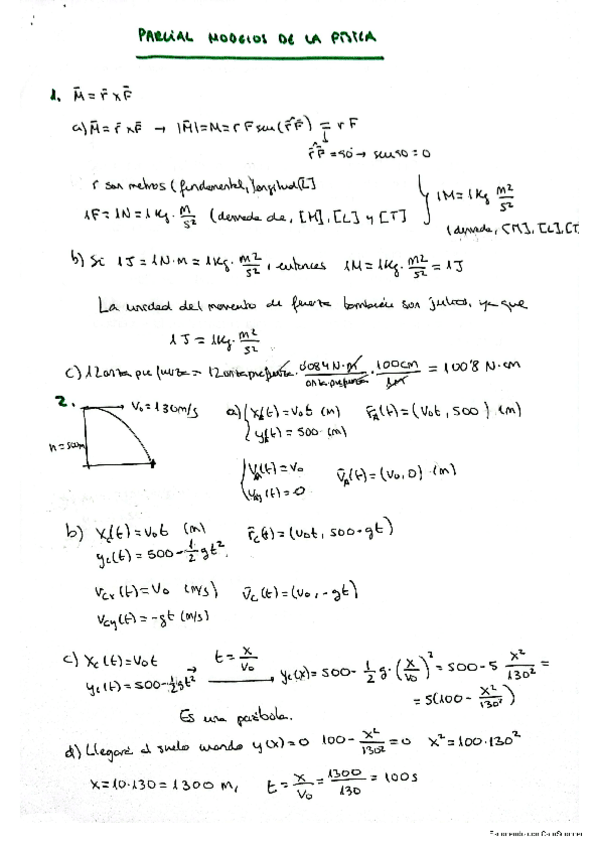 PARCIAL MODELOS DE LA FÍSICA
1. M̄ = r̄ x F̄
a) M̄ = r̄ x F̄ → |M̄| = M = r F sen(r̂F̂) = r F
r̂F̂ = 90 → sen 90 = 0
r son metros (fundamental, longitud [L]
1F = 1N = 1Kg · m/s² (derivada de, [M], [L] y [T]
1M = 1Kg m²/s²
(derivada, [M], [L], [T
b) Si 1J = 1N·m = 1Kg · m²/s², entonces 1M = 1Kg · m²/s² = 1J
La unidad del momento de fuerza también son julios, ya que
1J = 1Kg · m²/s²
c) 12 onza pie fuerza = 12 onza pie fuerza · 0084 N·m/onza pie fuerza · 100cm/1m = 100'8 N·cm
2. V₀ = 130m/s
h = 500m
a) x(t) = v₀t (m) r̄A(t) = (v₀t, 500) (m)
y(t) = 500 (m)
VA(t) = V₀ v̄A(t) = (v₀, 0) (m)
VAy(t) = 0
b) xc(t) = v₀t (m) r̄c(t) = (v₀t, 500 - gt)
yc(t) = 500 - 1/2 gt².
Vcx(t) = V₀ (m/s) v̄c(t) = (v₀, -gt)
Vcy(t) = -gt (m/s)
c) xc(t) = v₀t t = x/v₀
yc(t) = 500 - 1/2 gt² → yc(x) = 500 - 1/2 g · (x/v₀)² = 500 - 5 x²/130² =
= 5(100 - x²/130²)
Es una parábola.
d) Llegará al suelo cuando y(x) = 0 100 - x²/130² = 0 x² = 100·130²
x = 10·130 = 1300 m, t = x/v₀ = 1300/130 = 100s
Escaneado con CamScanner